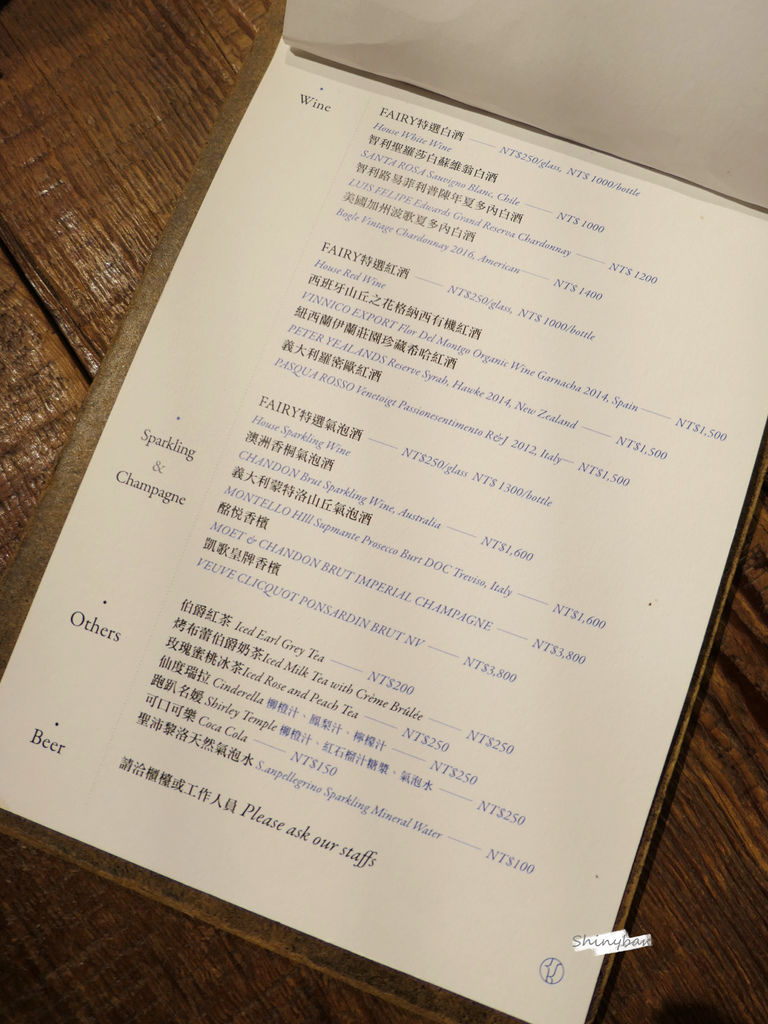 Wine
FAIRY特選白酒 —— NT$250/glass, NT$ 1000/bottle
House White Wine
智利聖羅莎白蘇維翁白酒
SANTA ROSA Sauvigno Blanc, Chile —— NT$ 1000
智利路易菲利普陳年夏多內白酒
LUIS FELIPE Edwards Grand Reserva Chardonnay —— NT$ 1200
美國加州波歌夏多內白酒
Bogle Vintage Chardonnay 2016, American —— NT$ 1400
FAIRY特選紅酒 —— NT$250/glass, NT$ 1000/bottle
House Red Wine
西班牙山丘之花格納西有機紅酒
VINNICO EXPORT Flor Del Montgo Organic Wine Garnacha 2014, Spain —— NT$1,500
紐西蘭伊蘭莊園珍藏希哈紅酒
PETER YEALANDS Reserve Syrah, Hawke 2014, New Zealand —— NT$1,500
義大利羅密歐紅酒
PASQUA ROSSO Venetoigt Passionesentimento R&J 2012, Italy— NT$1,500
Sparkling
&
Champagne
FAIRY特選氣泡酒 —— NT$250/glass NT$ 1300/bottle
House Sparkling Wine
澳洲香桐氣泡酒
CHANDON Brut Sparkling Wine, Australia —— NT$1,600
義大利蒙特洛山丘氣泡酒
MONTELLO HIll Supmante Prosecco Burt DOC Treviso, Italy —— NT$1,600
酩悅香檳
MOET & CHANDON BRUT IMPERIAL CHAMPAGNE —— NT$3,800
凱歌皇牌香檳
VEUVE CLICQUOT PONSARDIN BRUT NV —— NT$3,800
Others
伯爵紅茶 Iced Earl Grey Tea —— NT$200
烤布蕾伯爵奶茶Iced Milk Tea with Crème Brûlée —— NT$250
玫瑰蜜桃冰茶Iced Rose and Peach Tea —— NT$250
仙度瑞拉 Cinderella 柳橙汁、鳳梨汁、檸檬汁 —— NT$250
跑趴名媛 Shirley Temple 柳橙汁、紅石榴汁糖漿、氣泡水 —— NT$250
可口可樂 Coca Cola —— NT$150
聖沛黎洛天然氣泡水 S.anpellegrino Sparkling Mineral Water —— NT$100
Beer
請洽櫃檯或工作人員 Please ask our staffs
Shinyban